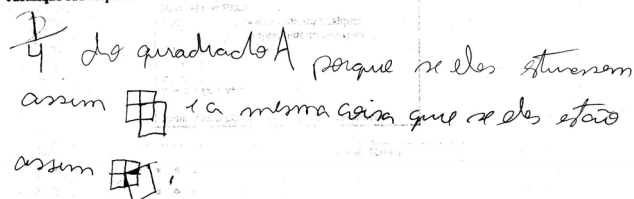 1/4 do quadrado A porque se eles estivessem
assim e a mesma coisa que se eles estão
assim .